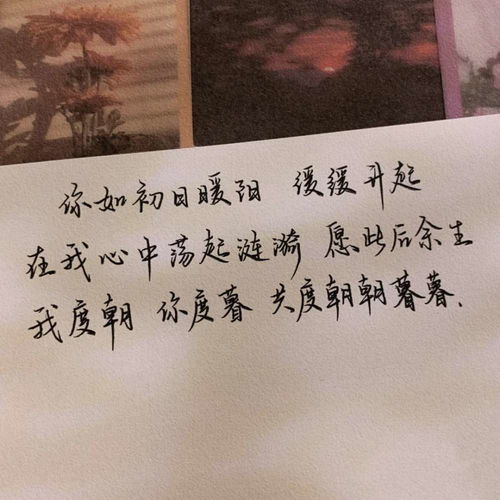 你如初日暖阳 缓缓升起
在我心中荡起涟漪 愿此后余生
我度朝 你度暮 共度朝朝暮暮.